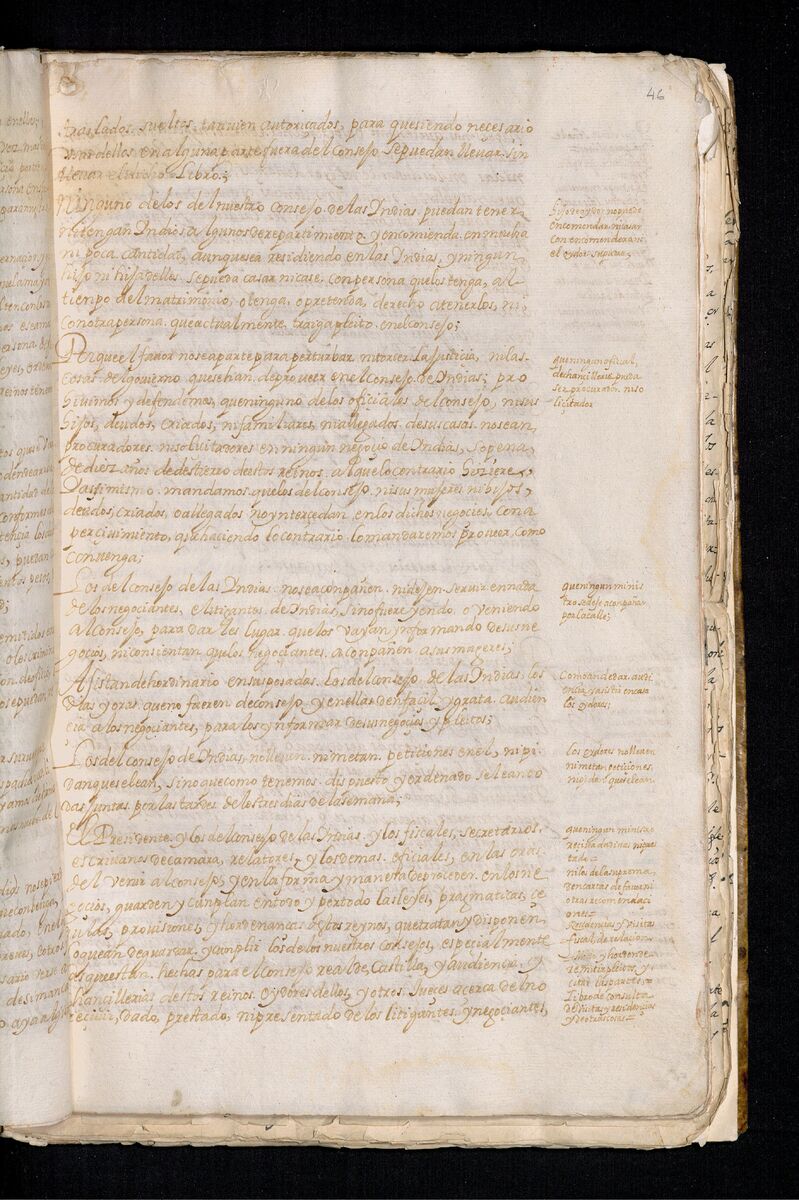 46
traslados, sueltos, tanuien autoriçados, para que siendo necesario
Vno dellos en alguna parte fuera del Consejo se puedan lleuar, sin
lleuar el dicho Libro;
Ninguno de los del nuestro Consejo de las Indias, puedan tener
ni tengan Indios algunos de repartimiento, y encomienda, en mucha
ni poca cantidad, aunque sea residiendo en las Indias, y ningun
hijo ni hija dellos, se pueda casar ni case, con persona que los tenga, al
tiempo del matrimonio, o tenga, o pretenda, derecho a tenerlos, ni
con otra persona, que actualmente traiga pleito en el consejo;
hijo de oydor no puede
encomendar, ni casar
con encomendera
Porque el fauor no sea parte para perturbar ni torcer la justicia, ni las
cosas del gouierno que se han de proueer en el Consejo de Indias; pro
hiuimos y defendemos, que ninguno de los oficiales del Consejo, ni sus
hijos, deudos, criados, ni familiares, ni allegados de sus casas no sean
procuradores, ni solicitadores en ningun negoçio de Indias, so pena
de diez años de destierro de estos reinos, al que lo contrario hiziere,
Y assimismo mandamos que los del consejo ni sus mujeres ni hijos,
deudos, criados, o allegados no yntercedan en los dichos negocios, con a
perciuimiento, que haciendo lo contrario lo mandaremos proueer, como
conuenga;
que ningun oficial
de chancilleria pueda
ser procurador, ni so
liçitador
Los del consejo de las Indias no se acompañen, ni dejen seruir en nada
de los negoçiantes, e litigantes de Indias, sino fuere yendo o veniendo
al Consejo, para dar les lugar que los vayan ynformando de sus ne
goçios, ni consientan que los negoçiantes acompañen a sus mugeres;
que ningun minis
tro se deje acompañar
por la calle;
Asistan de hordinario en sus posadas, los del consejo de las Indias los
dias y oras que no fueren de consejo, y en ellas den facil y grata audien
cia a los negoçiantes, para los ynformar de sus negoçios y pleitos;
Como an de dar audi
encia, y asistir en casa
los oydores;
Los del consejo de Indias, no lleuen ni metan petiçiones en el, ni pi
dan que se lean, sino que como tenemos dispuesto y ordenado se lean to
das juntas por las tardes de los tres dias de la semana;
los oydores no lleuen
ni metan petiçiones
ni pidan que se lean
El Presidente y los del consejo de las Indias y los fiscales, secretarios,
escriuanos de camara, relatores, y los demas oficiales, en las oras
del venir al consejo, y en la forma y manera de proceder en los ne
gocios, guarden y cunplan en todo y por todo las leyes, pragmaticas, ce
dulas, prouisiones, y hordenanças destos reynos, que tratan y disponen
lo que an de guardar, y cunplir los de los nuestros consejos, especialmente
las que estan hechas para el Consejo real de Castilla, y audiencias, y
chancillerias destos reinos, oydores dellos, y otros Jueçes acerca de lo no
reciuir, dado, prestado, ni presentado de los litigantes, y negoçiantes,
que ningun ministro
reciba dadiuas
ni den cartas de fauor ni
otras recomendaci
ones
Residencias y visitas
remitir pleitos, y
citar las partes
Libro de consulta
de visitas y residencias
y de otras cosas